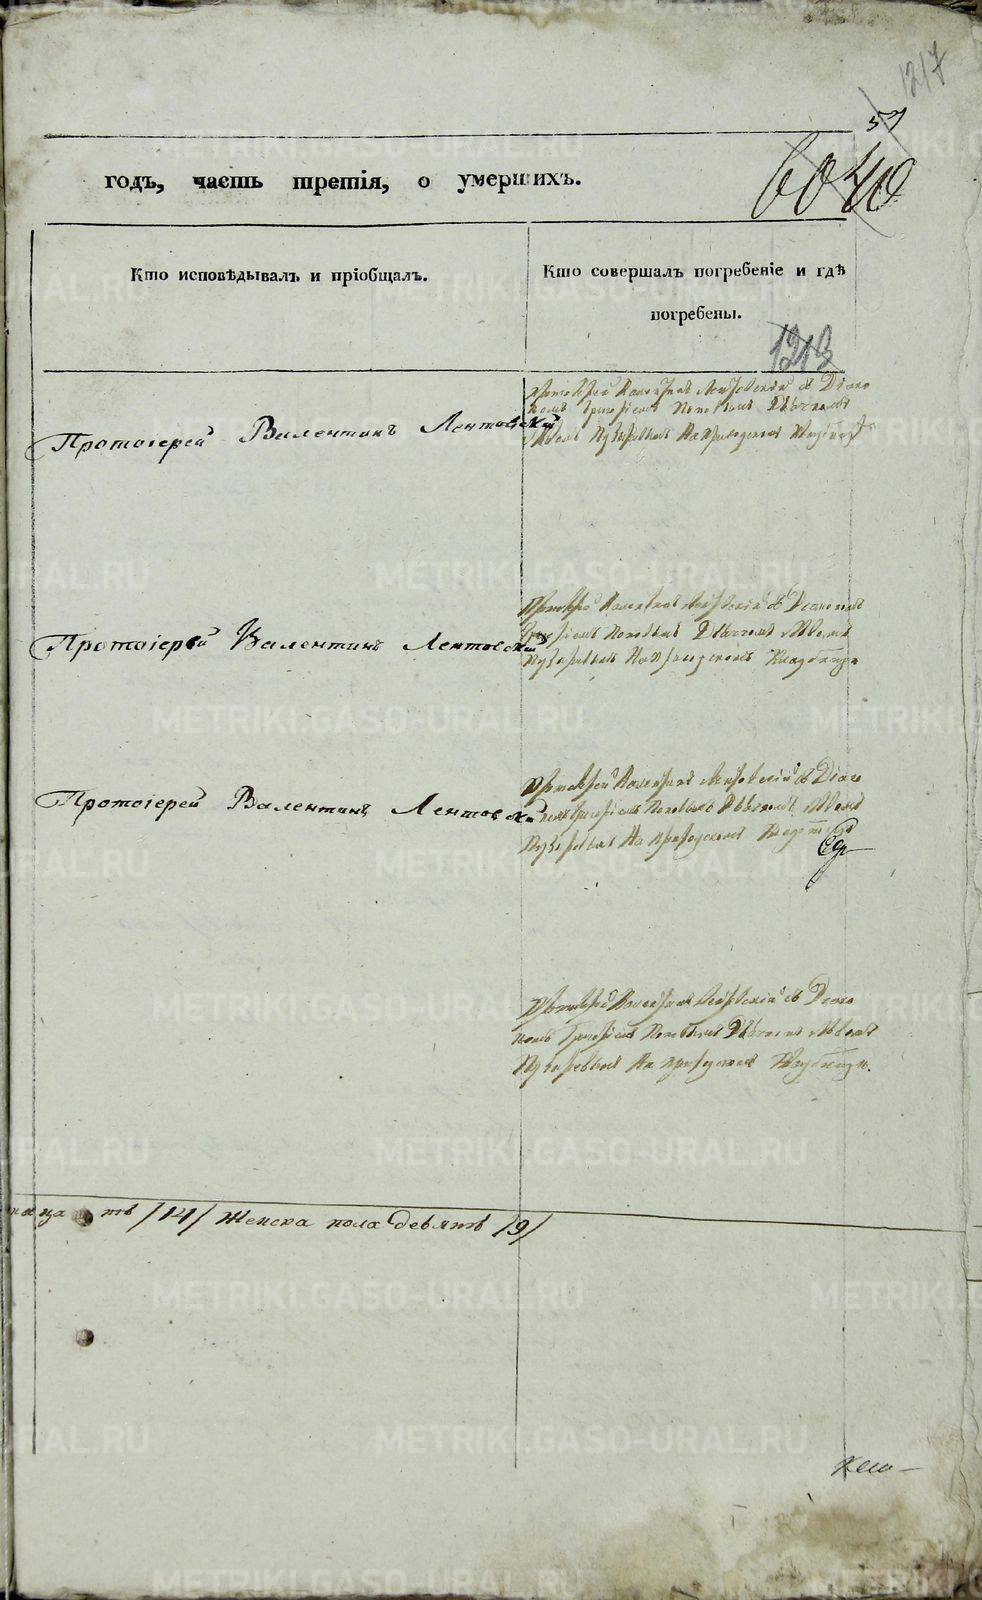 1217
57
6040
годъ, часть третія, о умершихъ.
Кто исповѣдывалъ и пріобщалъ.
Кто совершалъ погребеніе и гдѣ
погребены.
1213
Протоіерей Валентинъ Лентовскій
Протоіерей Валентинъ Лентовскій съ Діако
номъ Григоріемъ Поповымъ Дьячкомъ
На приходскомъ Кладбищѣ
Протоіерей Валентинъ Лентовскій
Протоіерей Валентинъ Лентовскій съ Діакономъ
Григоріемъ Поповымъ Дьячкомъ
На приходскомъ Кладбищѣ
Протоіерей Валентинъ Лентовскій
Протоіерей Валентинъ Лентовскій съ Діако
номъ Григоріемъ Поповымъ Дьячкомъ
На приходскомъ
Протоіерей Валентинъ Лентовскій съ Діако
номъ Григоріемъ Поповымъ Дьячкомъ
На приходскомъ Кладбищѣ.
/14/ Женска пола девять /9/
METRIKI.GASO-URAL.RU